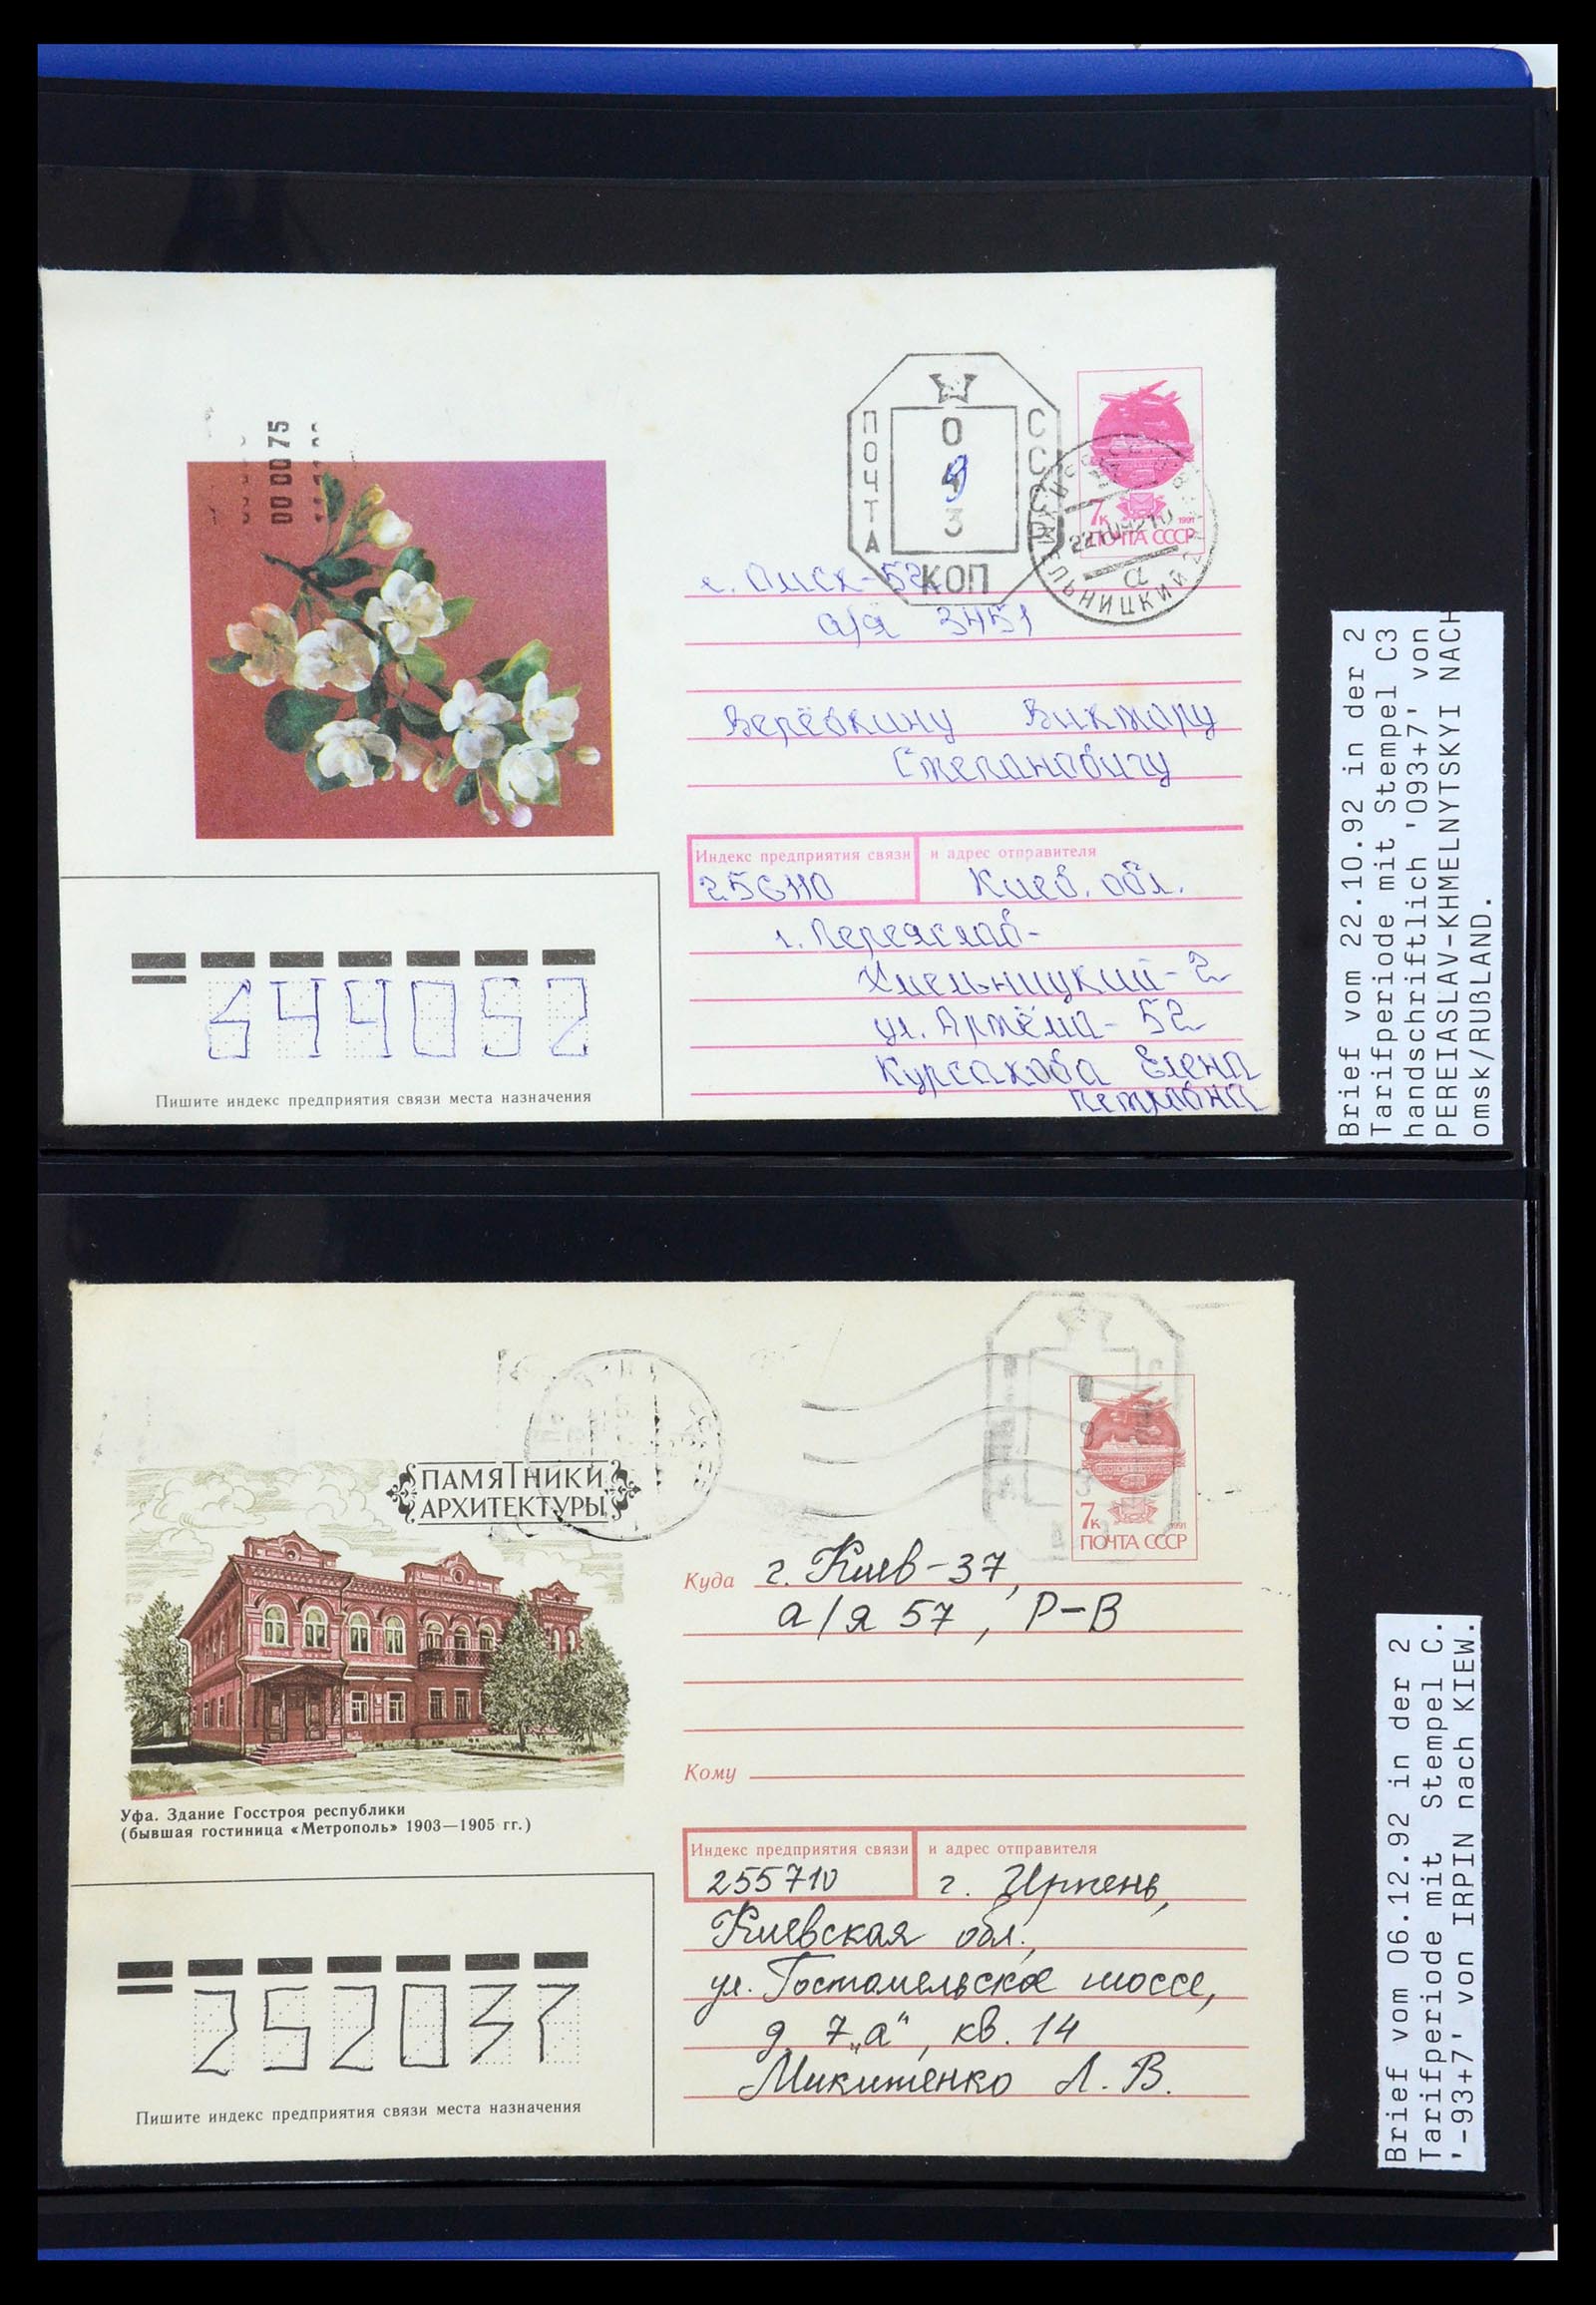 00 00 75
ПОЧТА
СССР
0
9
3
КОП
7к
1991
ПОЧТА СССР
22 10 92 10
а
г. Омск-52
а/я 3451
Верёвкину Виктору
Степановичу
Индекс предприятия связи
и адрес отправителя
256110
Киев. обл.
г. Переяслав-
Хмельницкий-2
ул. Артёма-52
Курсакова Елена
Петровна
644052
Пишите индекс предприятия связи места назначения
Brief vom 22.10.92 in der 2
Tarifperiode mit Stempel C3
handschriftlich '093+7' von
PEREIASLAV-KHMELNYTSKYI NACH
omsk/RUßLAND.
ПАМЯТНИКИ
АРХИТЕКТУРЫ
7к
1991
ПОЧТА СССР
Куда г. Киев-37,
а/я 57, Р-В
Кому
Уфа. Здание Госстроя республики
(бывшая гостиница «Метрополь» 1903—1905 гг.)
Индекс предприятия связи
и адрес отправителя
255710
г. Ирпень,
Киевская обл.,
ул. Гостомельское шоссе,
д. 7„а", кв. 14
Микитенко Л. В.
252037
Пишите индекс предприятия связи места назначения
Brief vom 06.12.92 in der 2
Tarifperiode mit Stempel C.
'-93+7' von IRPIN nach KIEW.